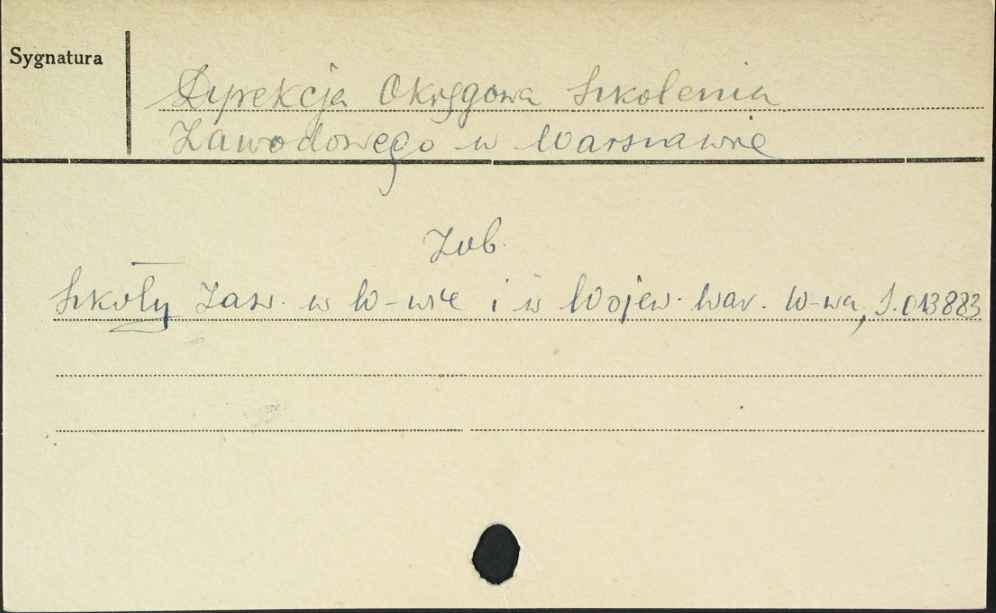 Sygnatura
Dyrekcja Okręgowa Szkolenia
Zawodowego w Warszawie
Zob.
Szkoły Zaw. w W-wie i w Wojew. War. W-wa, S.013883